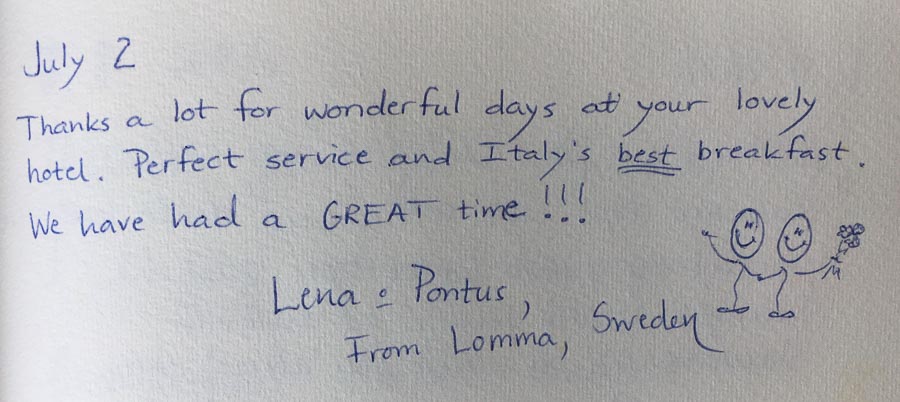 July 2
Thanks a lot for wonderful days at your lovely
hotel. Perfect service and Italy's best breakfast.
We have had a GREAT time !!!
Lena o Pontus,
From Lomma, Sweden